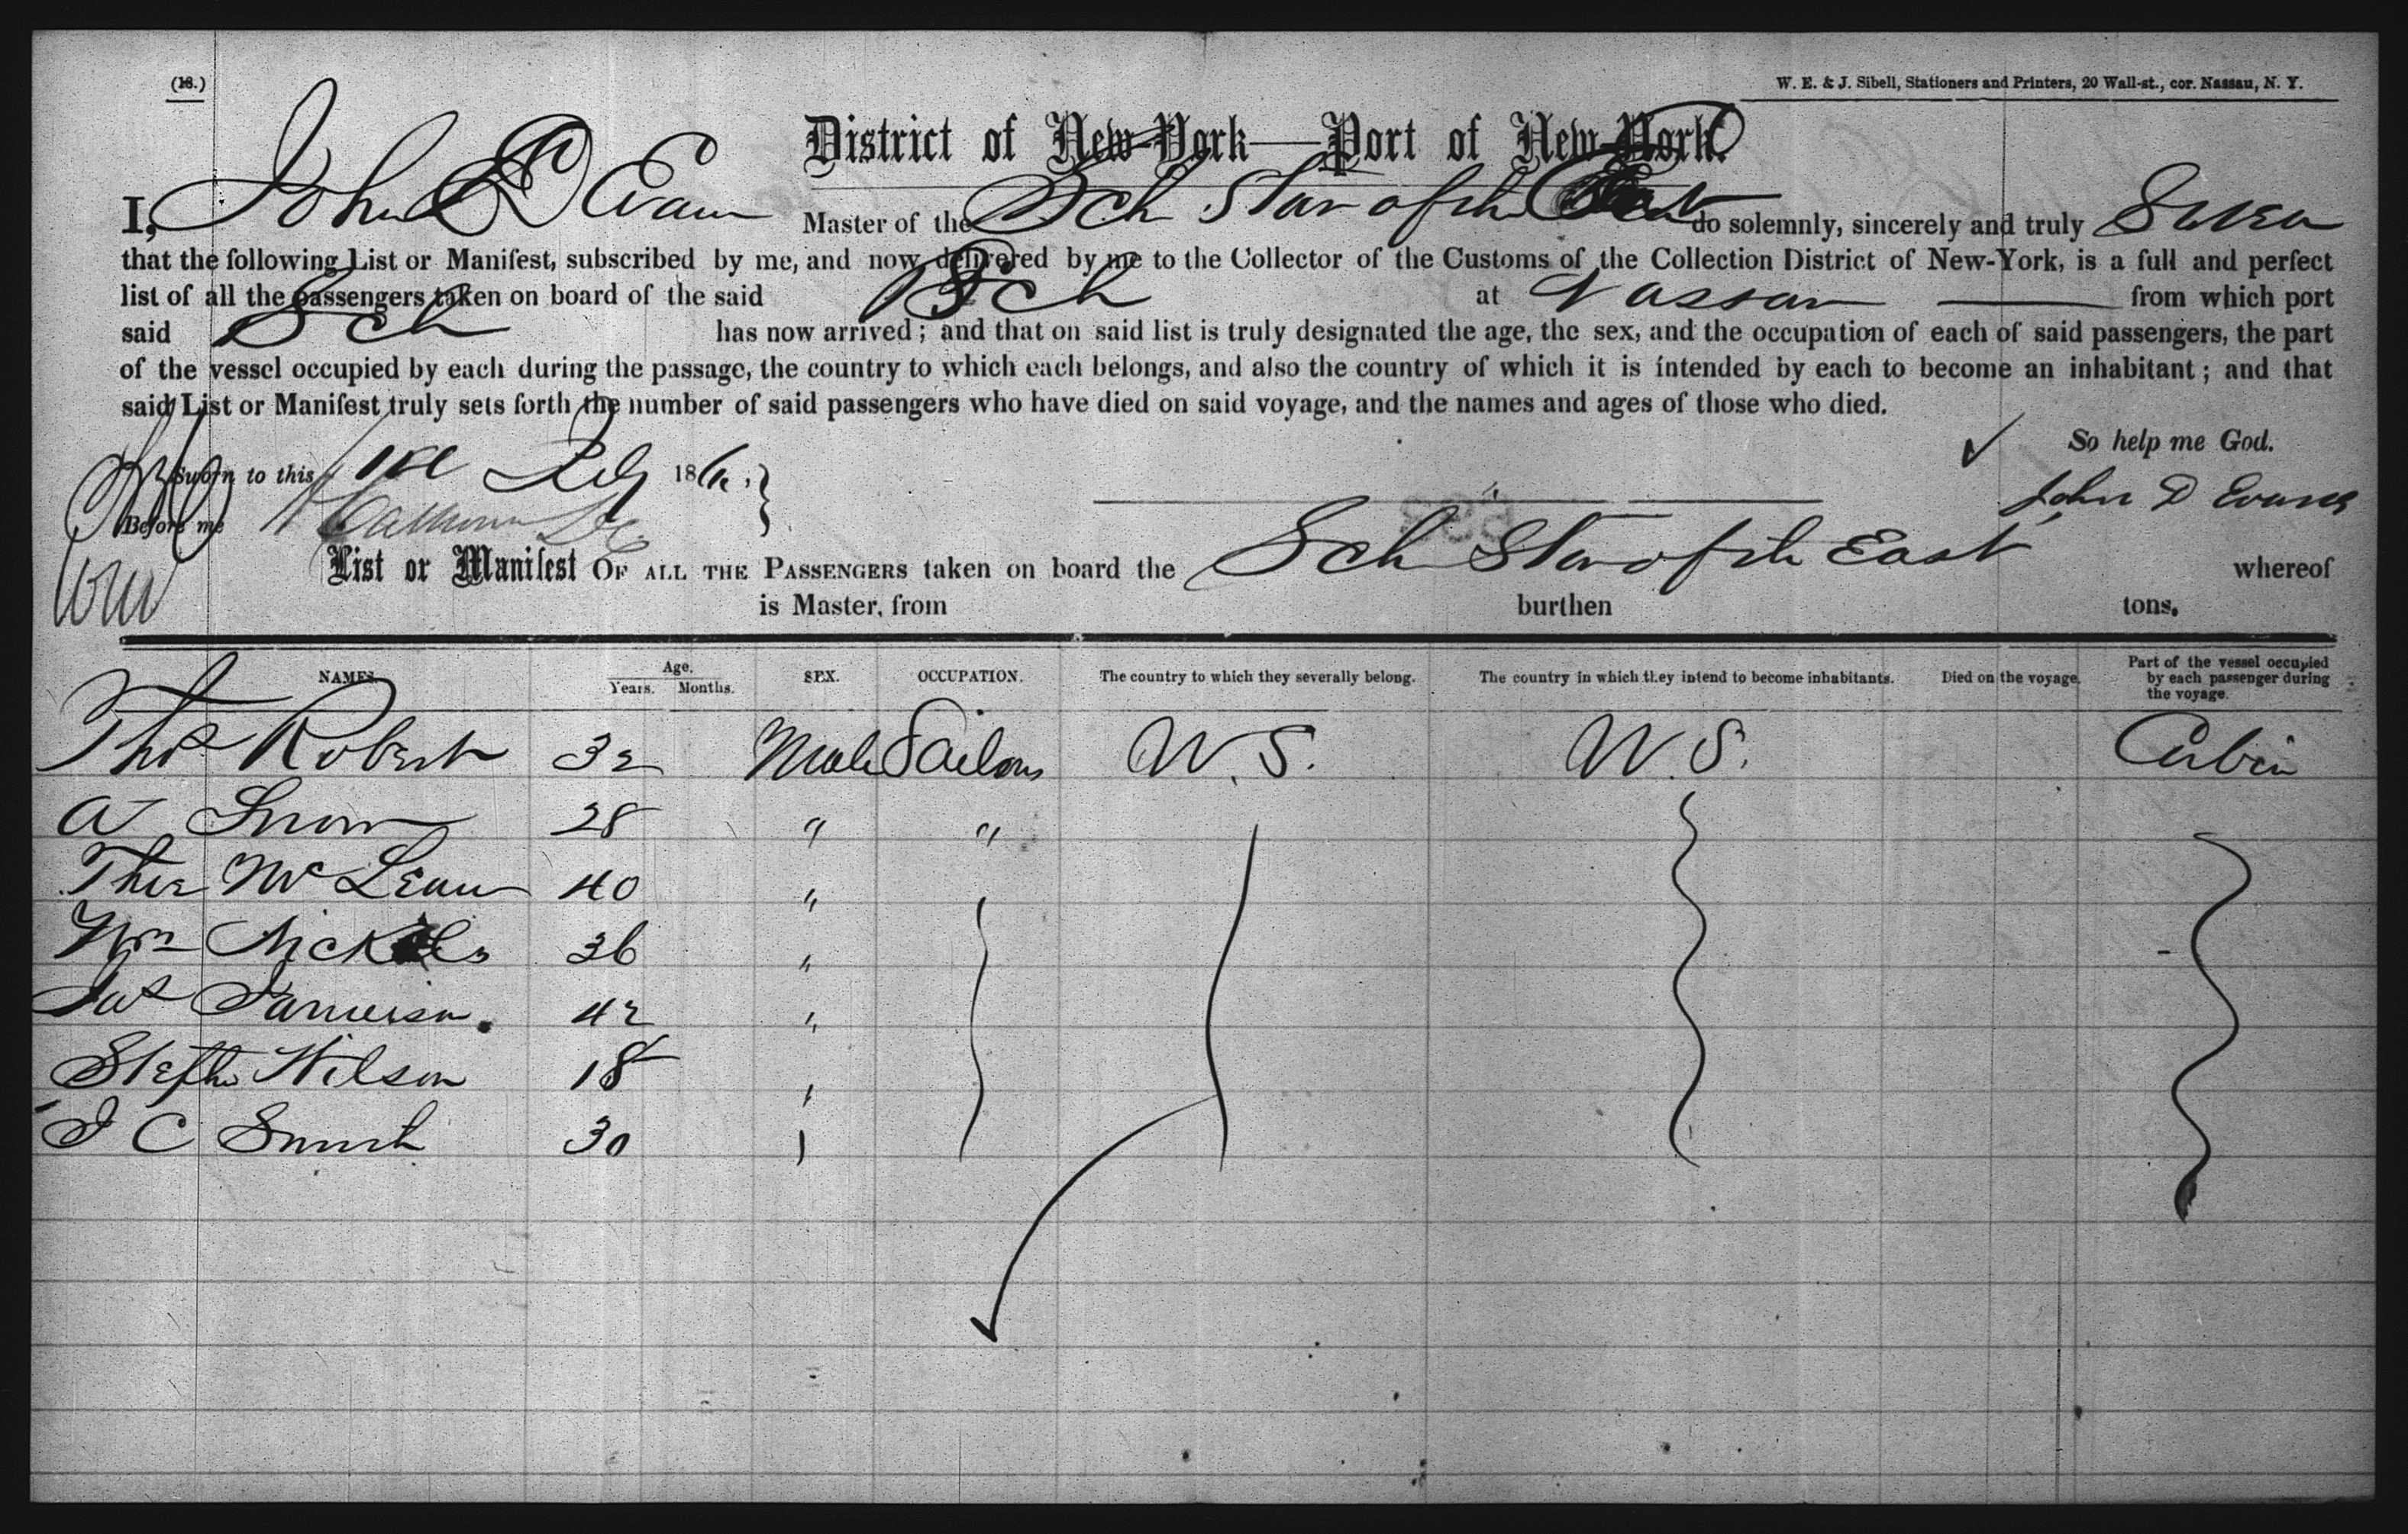 (18.)
W. E. & J. Sibell, Stationers and Printers, 20 Wall-st., cor. Nassau, N. Y.
District of New-York—Port of New-York.
I, John D Evans Master of the Sch Star of the East do solemnly, sincerely and truly Swear
that the following List or Manifest, subscribed by me, and now delivered by me to the Collector of the Customs of the Collection District of New-York, is a full and perfect
list of all the passengers taken on board of the said Sch at Nassau from which port
said Sch has now arrived; and that on said list is truly designated the age, the sex, and the occupation of each of said passengers, the part
of the vessel occupied by each during the passage, the country to which each belongs, and also the country of which it is intended by each to become an inhabitant; and that
said List or Manifest truly sets forth the number of said passengers who have died on said voyage, and the names and ages of those who died.
So help me God.
Sworn to this 186
John D Evans
Before me
List or Manifest OF ALL THE PASSENGERS taken on board the Sch Star of the East whereof
is Master, from burthen tons.
NAMES. Age. Years. Months. SEX. OCCUPATION. The country to which they severally belong. The country in which they intend to become inhabitants. Died on the voyage. Part of the vessel occupied by each passenger during the voyage.
Thos Robert 32 Male Sailors U.S. U.S. Cabin
A Snow 28 " "
Thos McLean 40 "
Wm Nickels 36 "
Jas Jamieson 42 "
Steph Wilson 18 "
J C Smith 30 "